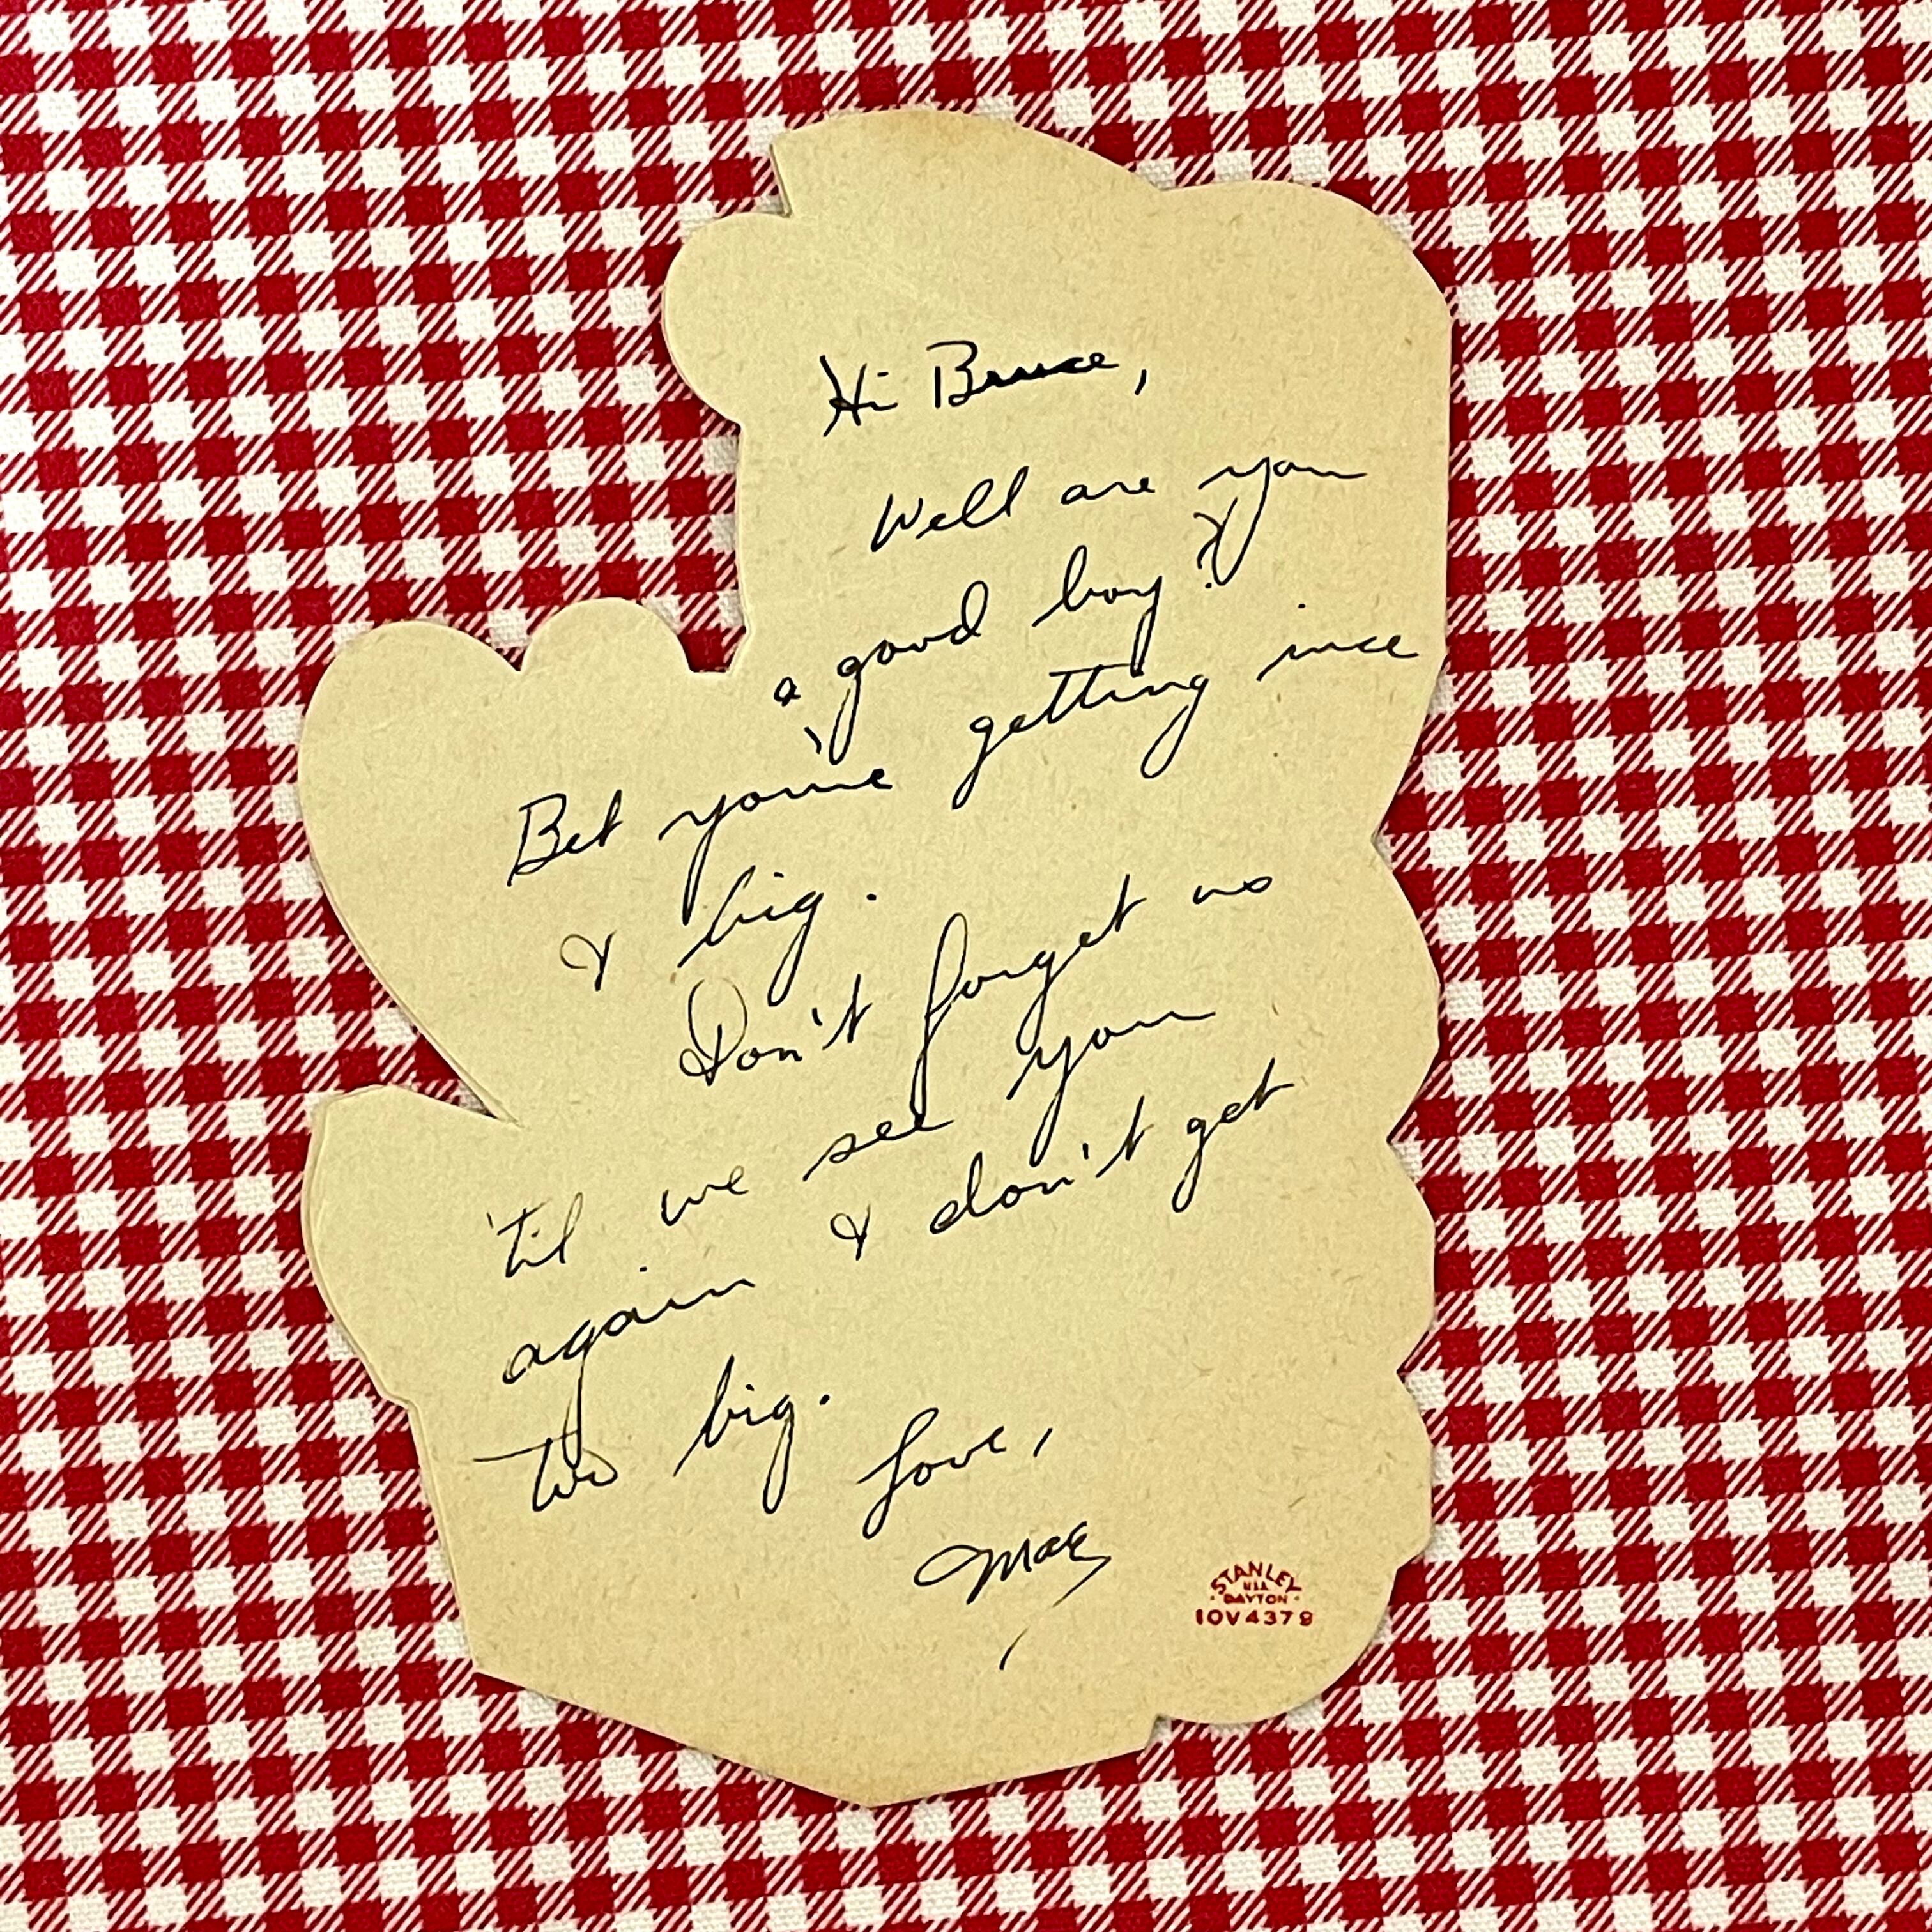 Hi Bruce,
Well are you
a good boy?
Bet you're getting nice
& big.
Don't forget us
'til we see you
again & don't get
too big.
Love,
Mae
STANLEY
U.S.A.
DAYTON
10V4379